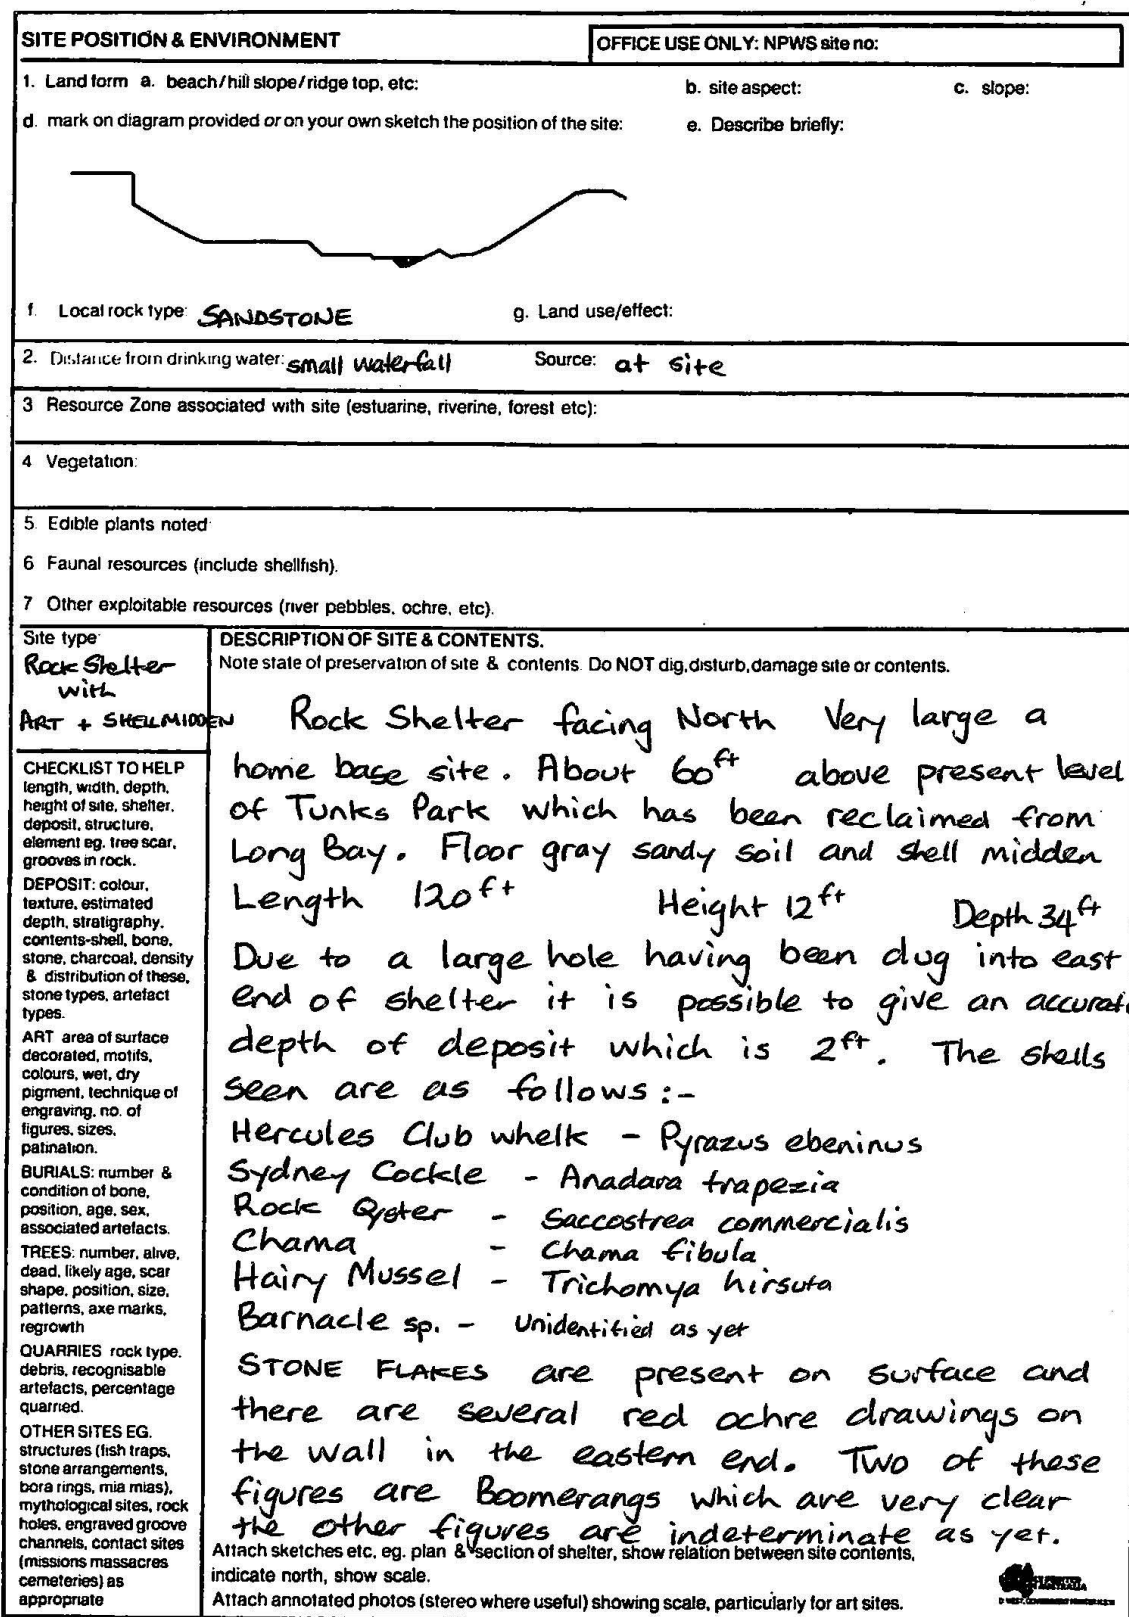 SITE POSITION & ENVIRONMENT
OFFICE USE ONLY: NPWS site no:
1. Land form a. beach/hill slope/ridge top, etc:
b. site aspect:
c. slope:
d. mark on diagram provided or on your own sketch the position of the site:
e. Describe briefly:
f. Local rock type: SANDSTONE
g. Land use/effect:
2. Distance from drinking water: small waterfall
Source: at site
3 Resource Zone associated with site (estuarine, riverine, forest etc):
4 Vegetation:
5. Edible plants noted
6 Faunal resources (include shellfish).
7 Other exploitable resources (river pebbles, ochre, etc).
Site type
Rock Shelter
with
ART + SHELL MIDDEN
CHECKLIST TO HELP
length, width, depth,
height of site, shelter,
deposit, structure,
element eg. tree scar,
grooves in rock.
DEPOSIT: colour,
texture, estimated
depth, stratigraphy,
contents-shell, bone,
stone, charcoal, density
& distribution of these,
stone types, artefact
types.
ART area of surface
decorated, motifs,
colours, wet, dry
pigment, technique of
engraving, no. of
figures, sizes,
patination.
BURIALS: number &
condition of bone,
position, age, sex,
associated artefacts.
TREES: number, alive,
dead, likely age, scar
shape, position, size,
patterns, axe marks,
regrowth
QUARRIES rock type,
debris, recognisable
artefacts, percentage
quarried.
OTHER SITES EG.
structures (fish traps,
stone arrangements,
bora rings, mia mias),
mythological sites, rock
holes, engraved groove
channels, contact sites
(missions massacres
cemeteries) as
appropriate
DESCRIPTION OF SITE & CONTENTS.
Note state of preservation of site & contents. Do NOT dig, disturb, damage site or contents.
Rock Shelter facing North Very large a
home base site. About 60ft above present level
of Tunks Park which has been reclaimed from
Long Bay. Floor gray sandy soil and shell midden
Length 120ft Height 12ft Depth 34ft
Due to a large hole having been dug into east
end of shelter it is possible to give an accurat
depth of deposit which is 2ft. The shells
seen are as follows:-
Hercules Club whelk - Pyrazus ebeninus
Sydney Cockle - Anadara trapezia
Rock Oyster - Saccostrea commercialis
Chama - Chama fibula
Hairy Mussel - Trichomya hirsuta
Barnacle sp. - Unidentified as yet
STONE FLAKES are present on surface and
there are several red ochre drawings on
the wall in the eastern end. Two of these
figures are Boomerangs which are very clear
the other figures are indeterminate as yet.
Attach sketches etc, eg. plan & section of shelter, show relation between site contents,
indicate north, show scale.
Attach annotated photos (stereo where useful) showing scale, particularly for art sites.